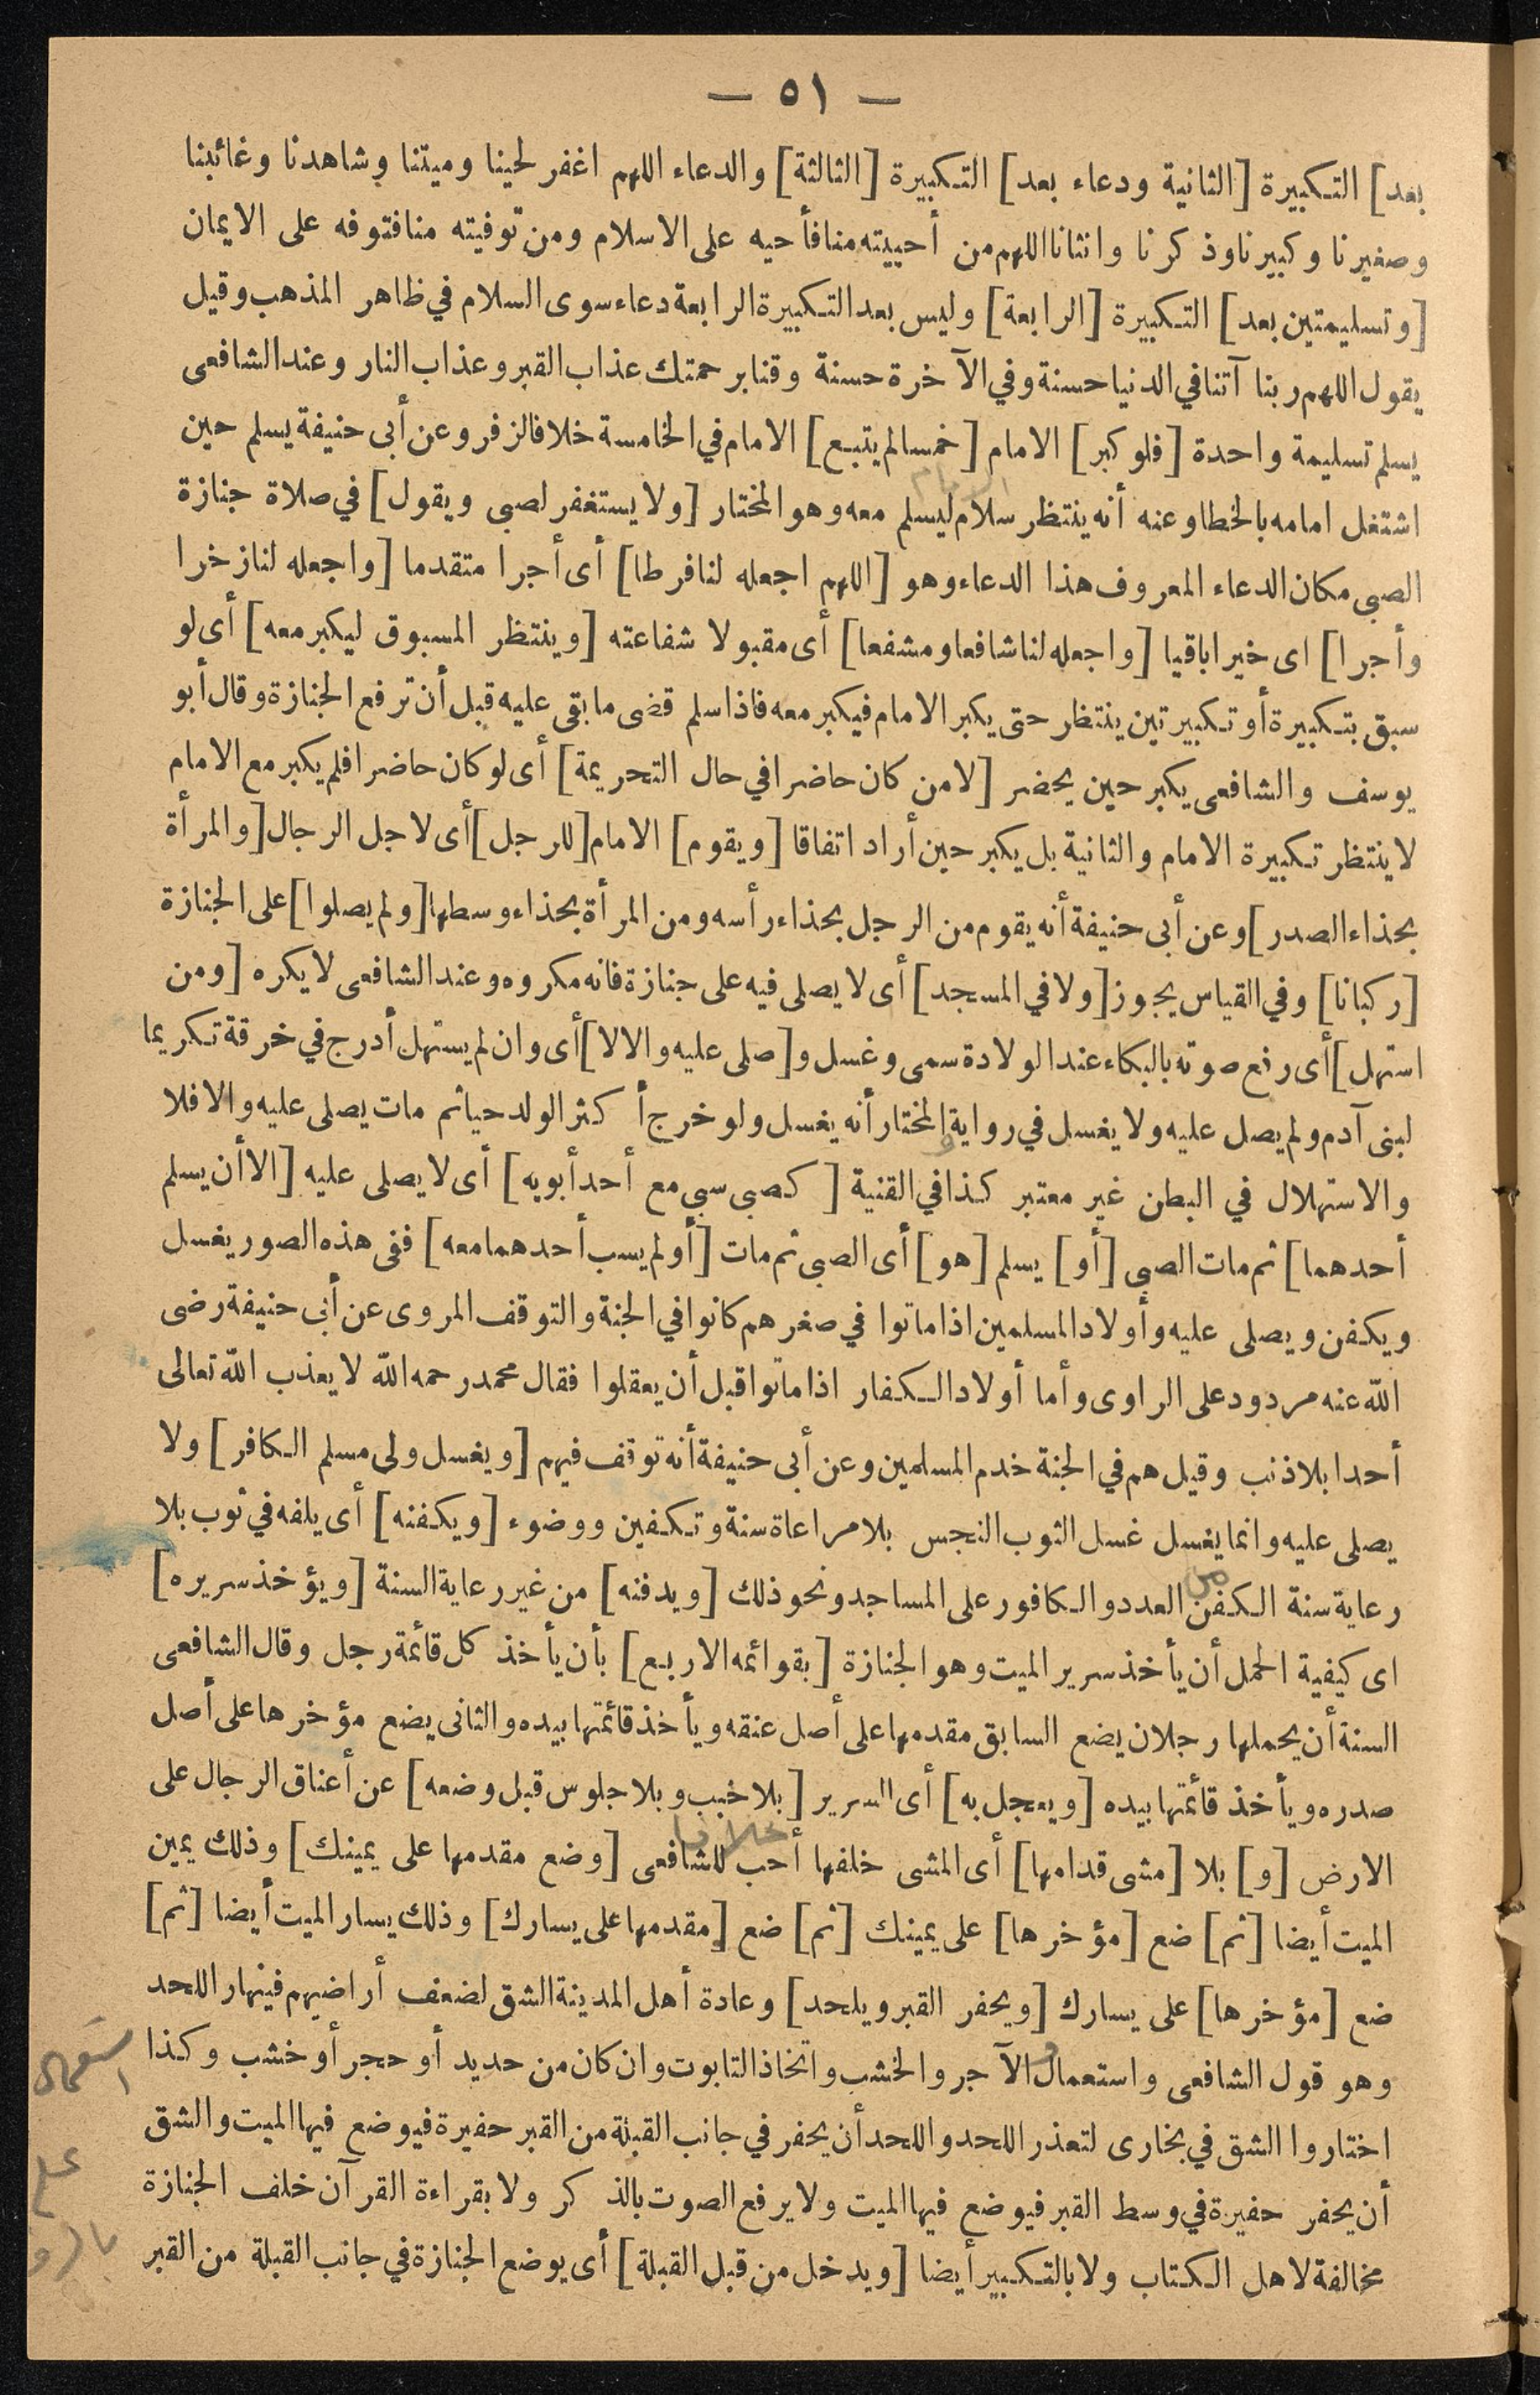 — ٥١ —
بعد] التكبيرة [الثانية ودعاء بعد] التكبيرة [الثالثة] والدعاء اللهم اغفر لحينا وميتنا وشاهدنا وغائبنا
وصغيرنا وكبيرنا وذكرنا وانثانا اللهم من أحييته منا فأحيه على الاسلام ومن توفيته منا فتوفه على الايمان
[وتسليمتين بعد] التكبيرة [الرابعة] وليس بعد التكبيرة الرابعة دعاء سوى السلام في ظاهر المذهب وقيل
يقول اللهم ربنا آتنا في الدنيا حسنة وفي الآخرة حسنة وقنا برحمتك عذاب القبر وعذاب النار وعند الشافعى
يسلم تسليمة واحدة [فلو كبر] الامام [خمسا لم يتبع] الامام في الخامسة خلافا لزفر وعن أبى حنيفة يسلم حين
اشتغل امامه بالخطا وعنه أنه ينتظر سلام الامام ليسلم معه وهو المختار [ولا يستغفر لصبى ويقول] في صلاة جنازة
الصبى مكان الدعاء المعروف هذا الدعاء وهو [اللهم اجعله لنا فرطا] أى أجرا متقدما [واجعله لنا زخرا
وأجرا] اى خيرا باقيا [واجعله لنا شافعا ومشفعا] أى مقبولا شفاعته [وينتظر المسبوق ليكبر معه] أى لو
سبق بتكبيرة أو تكبيرتين ينتظر حتى يكبر الامام فيكبر معه فاذا سلم قضى ما بقى عليه قبل أن ترفع الجنازة وقال أبو
يوسف والشافعى يكبر حين يحضر [لا من كان حاضرا في حال التحريمة] أى لو كان حاضرا فلم يكبر مع الامام
لا ينتظر تكبيرة الامام والثانية بل يكبر حين أراد اتفاقا [ويقوم] الامام [للرجل] أى لاجل الرجال [والمرأة
بحذاء الصدر] وعن أبى حنيفة أنه يقوم من الرجل بحذاء رأسه ومن المرأة بحذاء وسطها [ولم يصلوا] على الجنازة
[ركبانا] وفي القياس يجوز [ولا في المسجد] أى لا يصلى فيه على جنازة فانه مكروه وعند الشافعى لا يكره [ومن
استهل] أى رفع صوته بالبكاء عند الولادة سمى وغسل و[صلى عليه والا لا] أى وان لم يستهل أدرج في خرقة تكريما
لبنى آدم ولم يصل عليه ولا يغسل في رواية و المختار أنه يغسل ولو خرج أكثر الولد حيا ثم مات يصلى عليه والا فلا
والاستهلال في البطن غير معتبر كذا في القنية [كصبى سبى مع أحد أبويه] أى لا يصلى عليه [الا أن يسلم
أحدهما] ثم مات الصبى [أو] يسلم [هو] أى الصبى ثم مات [أو لم يسب أحدهما معه] ففى هذه الصور يغسل
ويكفن ويصلى عليه وأولاد المسلمين اذا ماتوا في صغرهم كانوا في الجنة والتوقف المروى عن أبى حنيفة رضى
الله عنه مردود على الراوى وأما أولاد الكفار اذا ماتوا قبل أن يعقلوا فقال محمد رحمه الله لا يعذب الله تعالى
أحدا بلا ذنب وقيل هم في الجنة خدم المسلمين وعن أبى حنيفة أنه توقف فيهم [ويغسل ولى مسلم الكافر] ولا
يصلى عليه وانما يغسل غسل الثوب النجس بلا مراعاة سنة وتكفين ووضوء [ويكفنه] أى يلفه في ثوب بلا
رعاية سنة الكفن من العدد والكافور على المساجد ونحو ذلك [ويدفنه] من غير رعاية السنة [ويؤخذ سريره]
اى كيفية الحمل أن يأخذ سرير الميت وهو الجنازة [بقوائمه الاربع] بأن يأخذ كل قائمة رجل وقال الشافعى
السنة أن يحملها رجلان يضع السابق مقدمها على أصل عنقه ويأخذ قائمتها بيده والثانى يضع مؤخرها على أصل
صدره ويأخذ قائمتها بيده [ويعجل به] أى السرير [بلا خبب وبلا جلوس قبل وضعه] عن أعناق الرجال على
الارض [و] بلا [مشى قدامها] أى المشى خلفها أحب خلافا للشافعى [وضع مقدمها على يمينك] وذلك يمين
الميت أيضا [ثم] ضع [مؤخرها] على يمينك [ثم] ضع [مقدمها على يسارك] وذلك يسار الميت أيضا [ثم]
ضع [مؤخرها] على يسارك [ويحفر القبر ويلحد] وعادة أهل المدينة الشق لضعف أراضيهم فينهار اللحد
وهو قول الشافعى واستعمال الآجر والخشب واتخاذ التابوت وان كان من حديد أو حجر أو خشب وكذا
استعمال
اختاروا الشق في بخارى لتعذر اللحد واللحد أن يحفر في جانب القبلة من القبر حفيرة فيوضع فيها الميت والشق
أن يحفر حفيرة في وسط القبر فيوضع فيها الميت ولا يرفع الصوت بالذكر ولا بقراءة القرآن خلف الجنازة
مخالفة لاهل الكتاب ولا بالتكبير أيضا [ويدخل من قبل القبلة] أى يوضع الجنازة في جانب القبلة من القبر